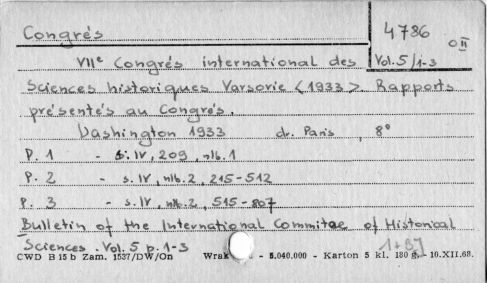 Congrés
4786
O II
VIIe Congrés international des
Vol. 5/1-3
Sciences historiques Varsovie <1933> Rapports
présentés au Congrés.
Washington 1933 dr. Paris, 8°
P. 1 - s. IV, 209, nlb. 1
P. 2 - s. IV, nlb. 2, 215-512
P. 3 - s. IV, nlb. 2, 515-807
Bulletin of the International Commitae of Historical
Sciences. Vol. 5 p. 1-3
CWD B 15 b Zam. 1537/DW/On Wrak - 5.040.000 - Karton 5 kl. 180 g. - 10.XII.68.